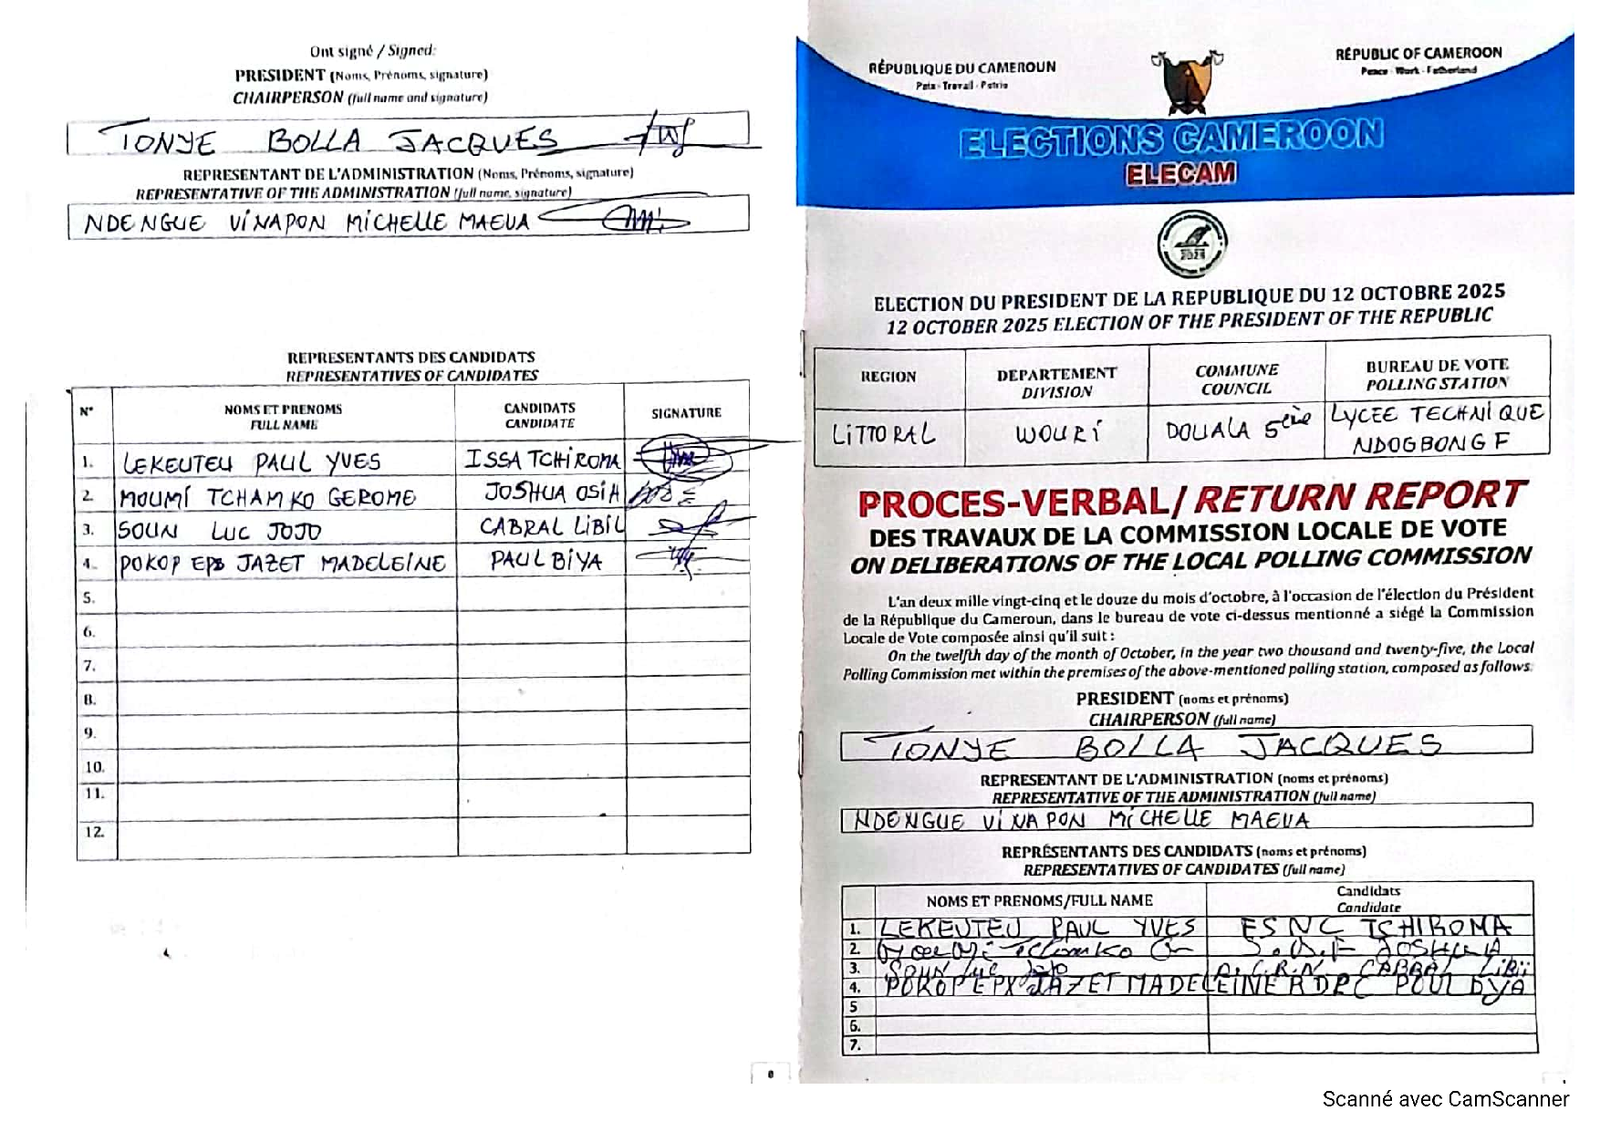 Ont signé / Signed:
PRESIDENT (Noms, Prénoms, signature)
CHAIRPERSON (full name and signature)
TONYE BOLLA JACQUES
REPRESENTANT DE L'ADMINISTRATION (Noms, Prénoms, signature)
REPRESENTATIVE OF THE ADMINISTRATION (full name, signature)
NDENGUE VINAPON MICHELLE MAEVA
REPRESENTANTS DES CANDIDATS
REPRESENTATIVES OF CANDIDATES
N° NOMS ET PRENOMS FULL NAME CANDIDATS CANDIDATE SIGNATURE
1. LEKEUTEU PAUL YVES ISSA TCHIROMA
2. MOUMI TCHAMKO GEROME JOSHUA OSIH
3. SOUN LUC JOJO CABRAL LIBII
4. POKOP EPS JAZET MADELEINE PAUL BIYA
5.
6.
7.
8.
9.
10.
11.
12.
8
RÉPUBLIQUE DU CAMEROUN
Paix - Travail - Patrie
RÉPUBLIC OF CAMEROON
Peace - Work - Fatherland
ELECTIONS CAMEROON
ELECAM
ELECTION DU PRESIDENT DE LA REPUBLIQUE DU 12 OCTOBRE 2025
12 OCTOBER 2025 ELECTION OF THE PRESIDENT OF THE REPUBLIC
REGION DEPARTEMENT DIVISION COMMUNE COUNCIL BUREAU DE VOTE POLLING STATION
LITTORAL WOURI DOUALA 5ème LYCEE TECHNIQUE NDOGBONG F
PROCES-VERBAL/ RETURN REPORT
DES TRAVAUX DE LA COMMISSION LOCALE DE VOTE
ON DELIBERATIONS OF THE LOCAL POLLING COMMISSION
L'an deux mille vingt-cinq et le douze du mois d'octobre, à l'occasion de l'élection du Président
de la République du Cameroun, dans le bureau de vote ci-dessus mentionné a siégé la Commission
Locale de Vote composée ainsi qu'il suit :
On the twelfth day of the month of October, in the year two thousand and twenty-five, the Local
Polling Commission met within the premises of the above-mentioned polling station, composed as follows.
PRESIDENT (noms et prénoms)
CHAIRPERSON (full name)
TONYE BOLLA JACQUES
REPRESENTANT DE L'ADMINISTRATION (noms et prénoms)
REPRESENTATIVE OF THE ADMINISTRATION (full name)
NDENGUE VINAPON MICHELLE MAEVA
REPRÉSENTANTS DES CANDIDATS (noms et prénoms)
REPRESENTATIVES OF CANDIDATES (full name)
NOMS ET PRENOMS/FULL NAME Candidats Candidate
1. LEKEUTEU PAUL YVES FSNC TCHIROMA
2. Tchamko S.D.F JOSHUA
3. Soun Luc Jojo P.C.R.N CABRAL LIBII
4. POKOP EPX JAZET MADELEINE RDPC POUL BYA
5
6.
7.
Scanné avec CamScanner